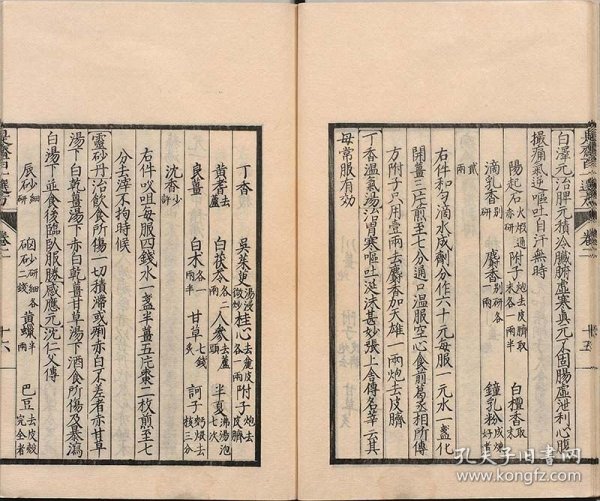 白澤元治脾元積冷臟腑虛寒真元不固腸虛泄利心腹
撮痛氣逆嘔吐自汗無時
陽起石火煅通赤研 附子炮去皮臍取末各一兩 白檀香取末
滴乳香別研 麝香別研各 鐘乳粉成煉好者
貳錢
右件和勻滴水成劑分作六十元每服一元水一盞化
開薑三片煎至七分通口溫服空心食前葛丞相所傳
方附子只用壹兩去麝香加天雄一兩炮去皮臍
丁香溫氣湯治胃寒嘔吐涎沫甚妙張上舍傳名莘云其
母常服有効
百一選方 卷二 十六
丁香 吳茱萸湯浸微炒 桂心去麄皮各 附子炮去皮臍
黃耆去蘆 白茯苓各二兩 人參去蘆 半夏沸湯泡七次
良薑兩半 白朮各一兩 甘草七錢 訶子煨去核三分
沈香少許
右件㕮咀每服四錢水一盞半薑五片棗二枚煎至七
分去滓不拘時候
靈砂丹治飲食所傷一切積滯或痢赤白不差者赤甘草
湯下白乾薑湯下赤白乾薑甘草湯下酒食所傷及暴瀉
白湯下並食後臨臥服勝感應元沈二父傳
辰砂細研 硇砂研細各二錢 黃蠟半兩 巴豆去皮殻完全者
孔夫子旧書网
www.kongfz.com